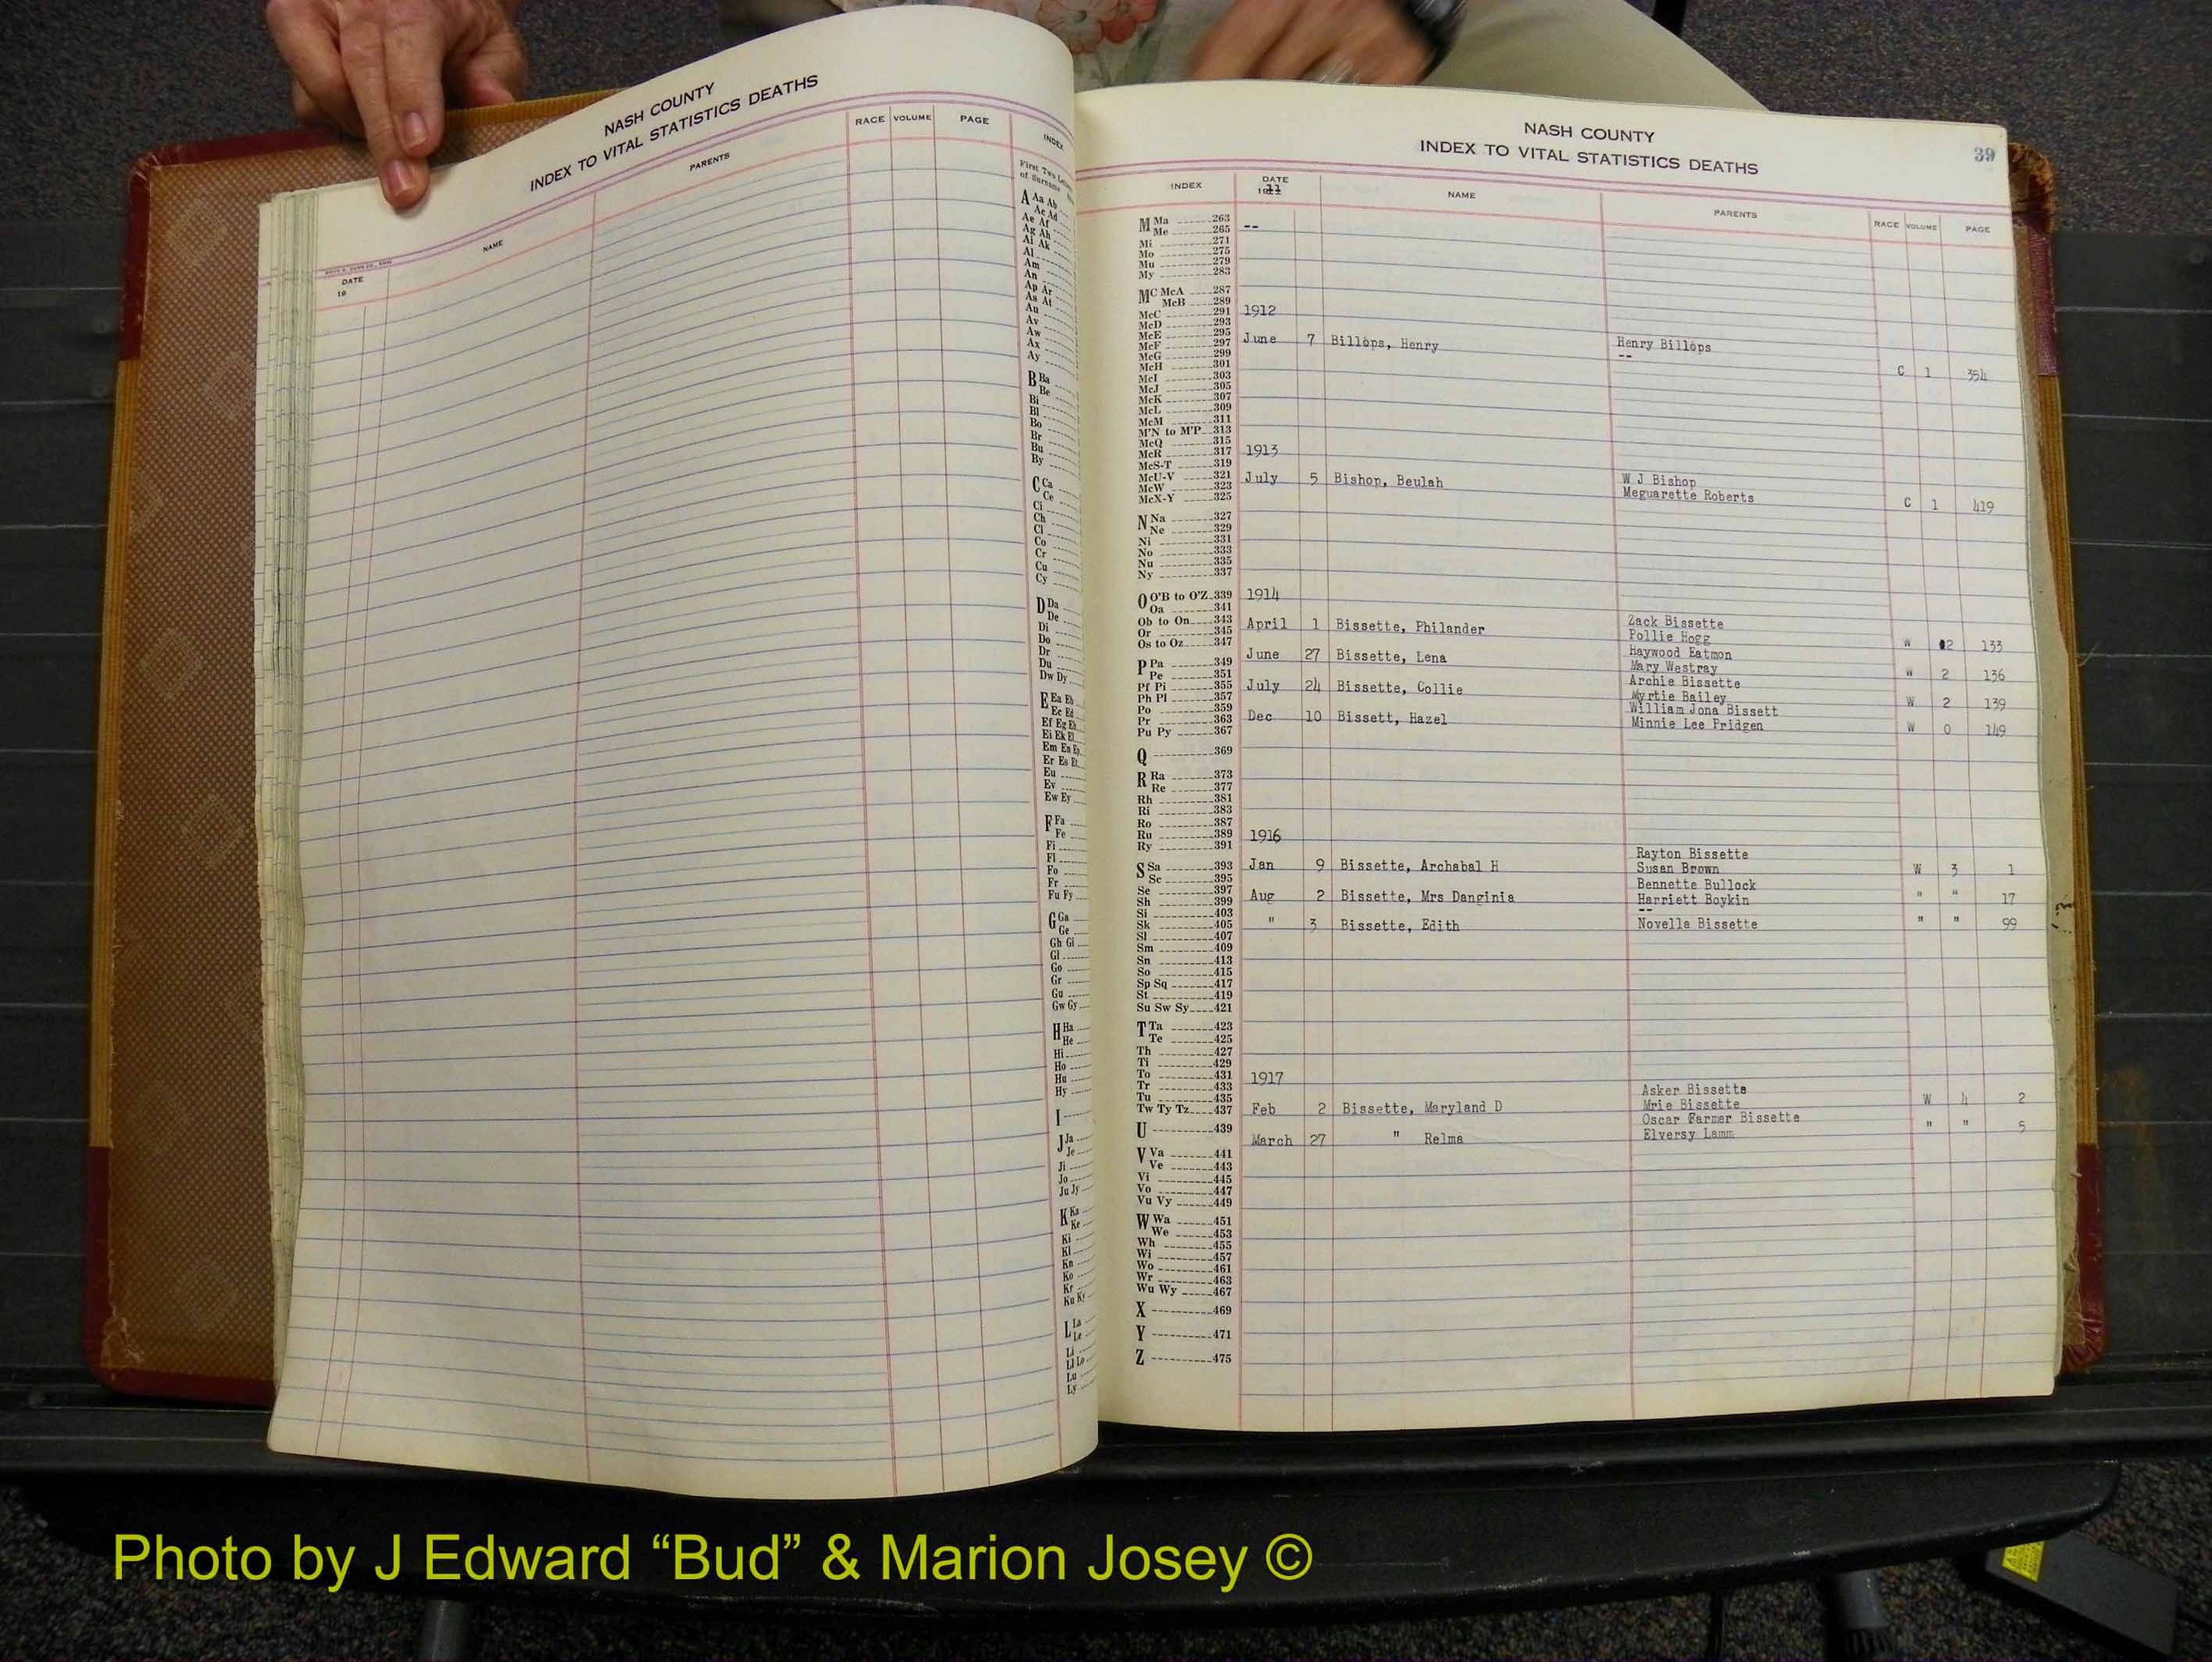 NASH COUNTY
INDEX TO VITAL STATISTICS DEATHS
DATE
19
NAME
PARENTS
RACE VOLUME PAGE
INDEX
First Two Letters
of Surname
A Aa Ab
Ac Ad
Ae Af
Ag Ah
Ai Ak
Al
Am
An
Ap Ar
As At
Au
Av
Aw
Ax
Ay
B Ba
Be
Bi
Bl
Bo
Br
Bu
By
C Ca
Ce
Ci
Ch
Cl
Co
Cr
Cu
Cy
D Da
De
Di
Do
Dr
Du
Dw Dy
E Ea Eb
Ec Ed
Ef Eg Eh
Ei Ek El
Em En Ep
Er Es Et
Eu
Ev
Ew Ey
F Fa
Fe
Fi
Fl
Fo
Fr
Fu Fy
G Ga
Ge
Gh Gi
Gl
Go
Gr
Gu
Gw Gy
H Ha
He
Hi
Ho
Hu
Hy
I
J Ja
Je
Ji
Jo
Ju Jy
K Ka
Ke
Ki
Kl
Kn
Ko
Kr
Ku Ky
L La
Le
Li
Ll Lo
Lu
Ly
NASH COUNTY
INDEX TO VITAL STATISTICS DEATHS
39
INDEX DATE NAME PARENTS RACE VOLUME PAGE
1911
M Ma 263
Me 265
Mi 271
Mo 275
Mu 279
My 283
MC McA 287
McB 289
McC 291
McD 293
McE 295
McF 297
McG 299
McH 301
McI 303
McJ 305
McK 307
McL 309
McM 311
M'N to M'P 313
McQ 315
McR 317
McS-T 319
McU-V 321
McW 323
McX-Y 325
N Na 327
Ne 329
Ni 331
No 333
Nu 335
Ny 337
O O'B to O'Z 339
Oa 341
Ob to On 343
Or 345
Os to Oz 347
P Pa 349
Pe 351
Pf Pi 355
Ph Pl 357
Po 359
Pr 363
Pu Py 367
Q 369
R Ra 373
Re 377
Rh 381
Ri 383
Ro 387
Ru 389
Ry 391
S Sa 393
Sc 395
Se 397
Sh 399
Si 403
Sk 405
Sl 407
Sm 409
Sn 413
So 415
Sp Sq 417
St 419
Su Sw Sy 421
T Ta 423
Te 425
Th 427
Ti 429
To 431
Tr 433
Tu 435
Tw Ty Tz 437
U 439
V Va 441
Ve 443
Vi 445
Vo 447
Vu Vy 449
W Wa 451
We 453
Wh 455
Wi 457
Wo 461
Wr 463
Wu Wy 467
X 469
Y 471
Z 475
--
1912
June 7 Billops, Henry Henry Billops
--
C 1 354
1913
July 5 Bishop, Beulah W J Bishop
Meguarette Roberts C 1 419
1914
April 1 Bissette, Philander Zack Bissette
Pollie Hogg W 2 133
June 27 Bissette, Lena Haywood Eatmon
Mary Westray " 2 136
July 24 Bissette, Collie Archie Bissette
Myrtie Bailey W 2 139
Dec 10 Bissett, Hazel William Jona Bissett
Minnie Lee Fridgen W 0 149
1916
Jan 9 Bissette, Archabal H Rayton Bissette
Susan Brown W 3 1
Aug 2 Bissette, Mrs Danginia Bennette Bullock
Harriett Boykin " " 17
" 3 Bissette, Edith --
Novella Bissette " " 99
1917
Feb 2 Bissette, Maryland D Asker Bissette
Mrie Bissette W 4 2
March 27 " Relma Oscar Farmer Bissette
Elversy Lamm " " 5
Photo by J Edward “Bud” & Marion Josey ©